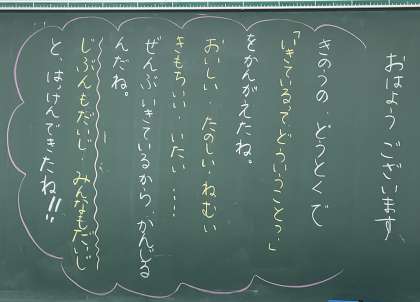 おはよう ございます
きのうの どうとくで
「いきているってどういうこと？」
をかんがえたね。
おいしい・たのしい・ねむい
きもちいい・いたい・・・・
ぜんぶ いきているから、かんじる
んだね。
じぶんもだいじ・みんなもだいじ
と、はっけんできたね!!